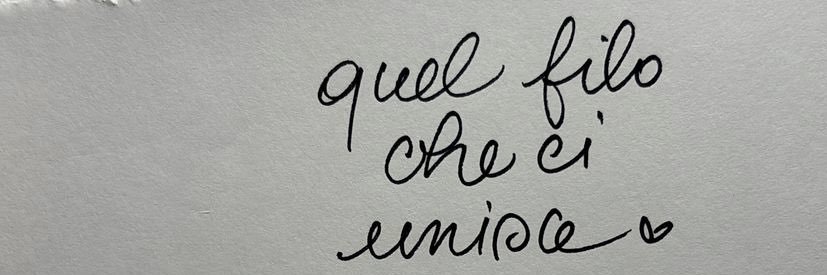 quel filo
che ci
unisce ♥